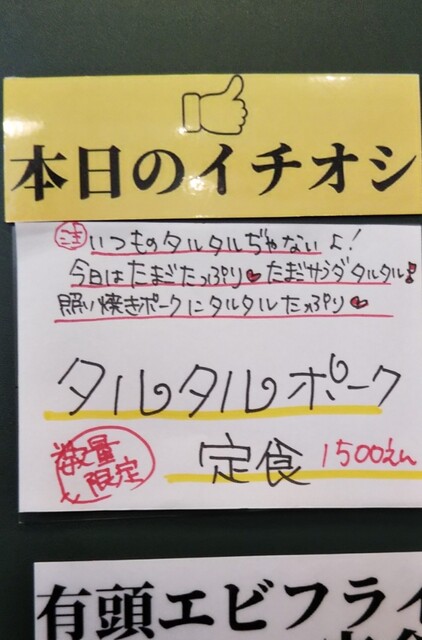 本日のイチオシ
注 いつものタルタルぢゃないよ!
今日はたまごたっぷり♥たまごサンダタルタル♪
照り焼きポークにタルタルたっぷり♥
タルタルポーク
定食 1500えん
数量
限定
有頭エビフライ